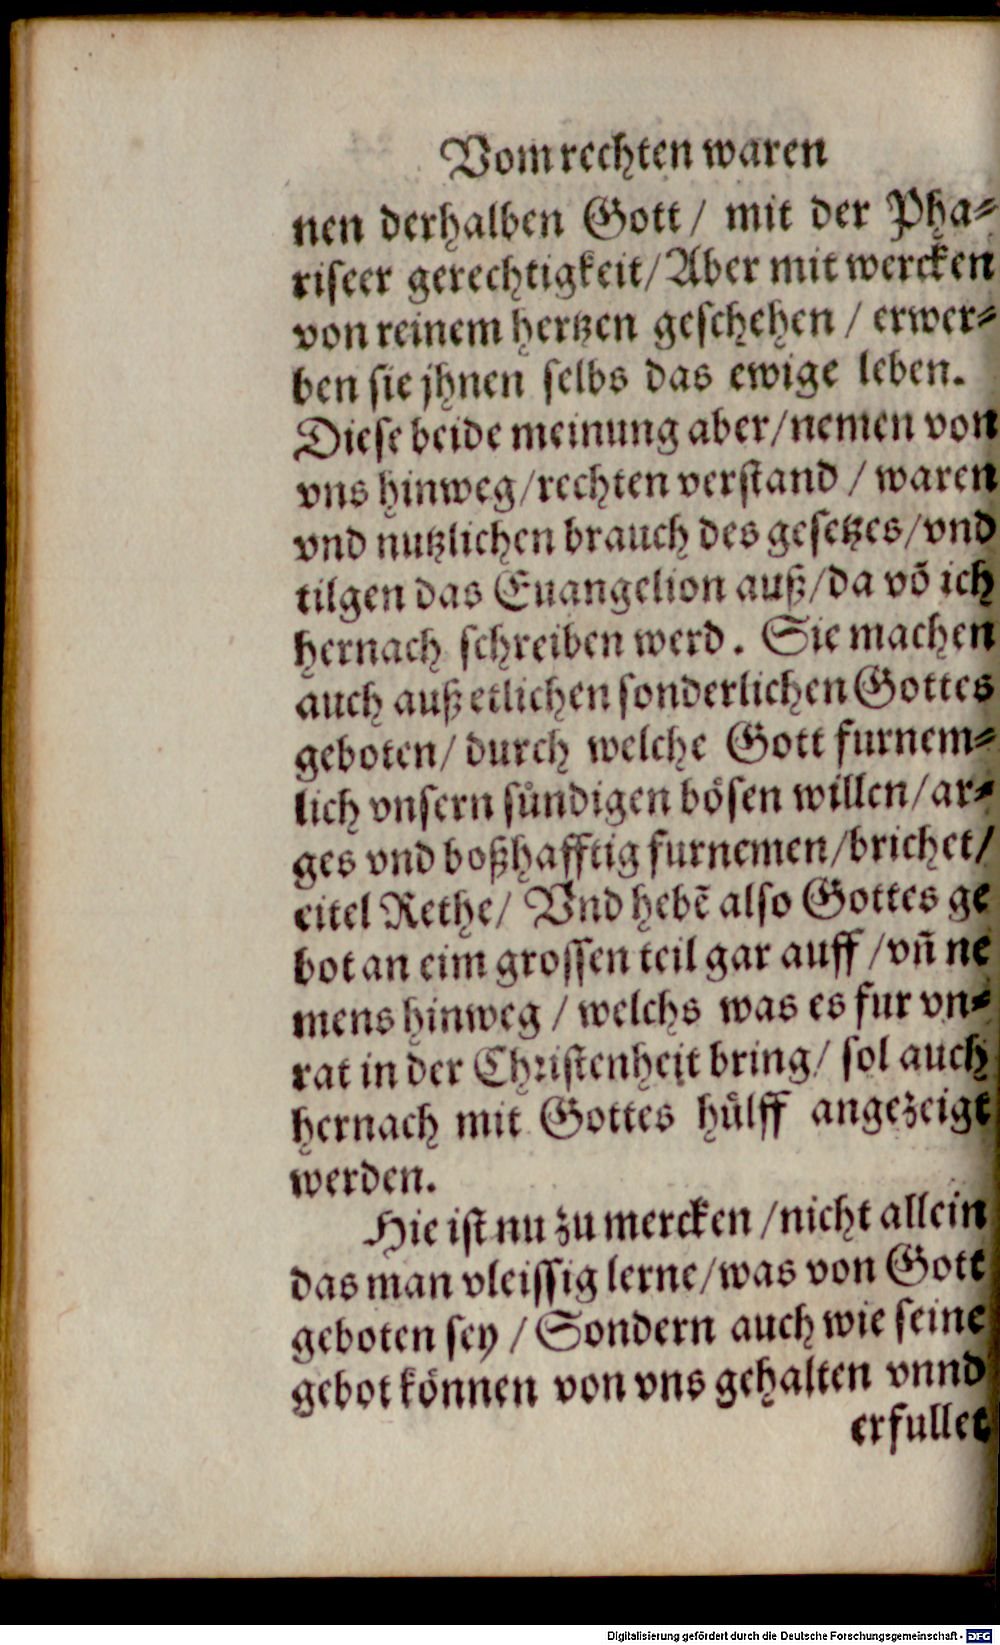 Vom rechten waren
nen derhalben Gott/ mit der Pha⸗
riseer gerechtigkeit/ Aber mit wercken
von reinem hertzen geschehen / erwer⸗
ben sie jhnen selbs das ewige leben.
Diese beide meinung aber/nemen von
vns hinweg/rechten verstand / waren
vnd nutzlichen brauch des gesetzes/vnd
tilgen das Euangelion auß/da vō ich
hernach schreiben werd. Sie machen
auch auß etlichen sonderlichen Gottes
geboten/ durch welche Gott furnem⸗
lich vnsern sündigen bösen willen/ar⸗
ges vnd boßhafftig furnemen/brichet/
eitel Rethe/ Vnd hebē also Gottes ge
bot an eim grossen teil gar auff /vn̄ ne
mens hinweg / welchs was es fur vn⸗
rat in der Christenheit bring/ sol auch
hernach mit Gottes hülff angezeigt
werden.
Hie ist nu zu mercken /nicht allein
das man vleissig lerne/was von Gott
geboten sey / Sondern auch wie seine
gebot können von vns gehalten vnnd
erfullet
Digitalisierung gefördert durch die Deutsche Forschungsgemeinschaft - DFG